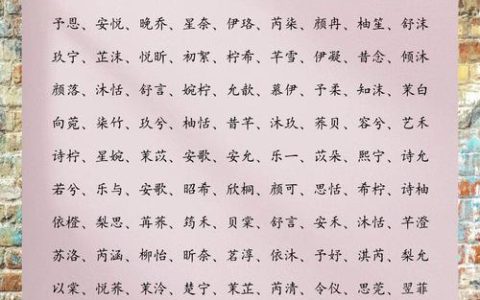 予恩、安悦、晚乔、星奈、伊珞、芮柒、颜冉、柚笙、舒沫
玖宁、芷沫、悦昕、初絮、柠希、芊雪、伊凝、昔念、倾沐
颜落、沐恬、舒言、婉柠、允歆、慕伊、予柔、知沫、茉白
向菀、柒竹、玖兮、柚恬、昔芊、沐玖、荞贝、容兮、艺禾
诗柠、星婉、茉苡、安歌、安允、乐一、苡朵、熙宁、诗允
若兮、乐与、安歌、昭希、欣桐、颜可、思恬、希柠、诗柚
依橙、梨思、苒荞、筠禾、贝棠、舒言、安禾、沐恬、芊澄
苏洛、芮涵、柳怡、昕奈、茗淳、依沐、予妤、淇芮、梨允
以棠、悦荞、茉泠、楚宁、茉芷、芮清、令仪、思菀、翌菲